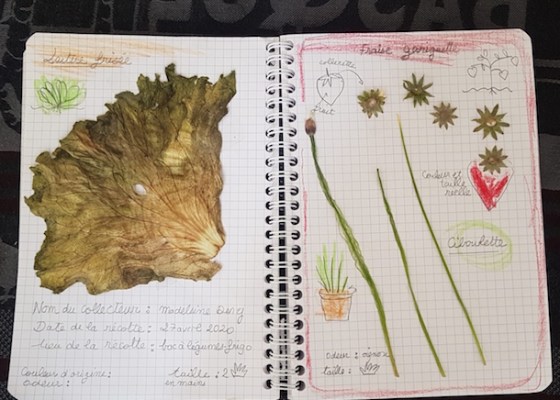 Laitue frisée
Nom du collecteur : madeleine
Date de la récolte : 27 avril 2020
Lieu de la récolte : bac à légumes frigo
Couleur d'origine :
odeur :
taille : 2
en mains
Fraise gariguette
collerette
fruit
Couleur et
taille
réelle
Ciboulette
odeur : oignon
taille :